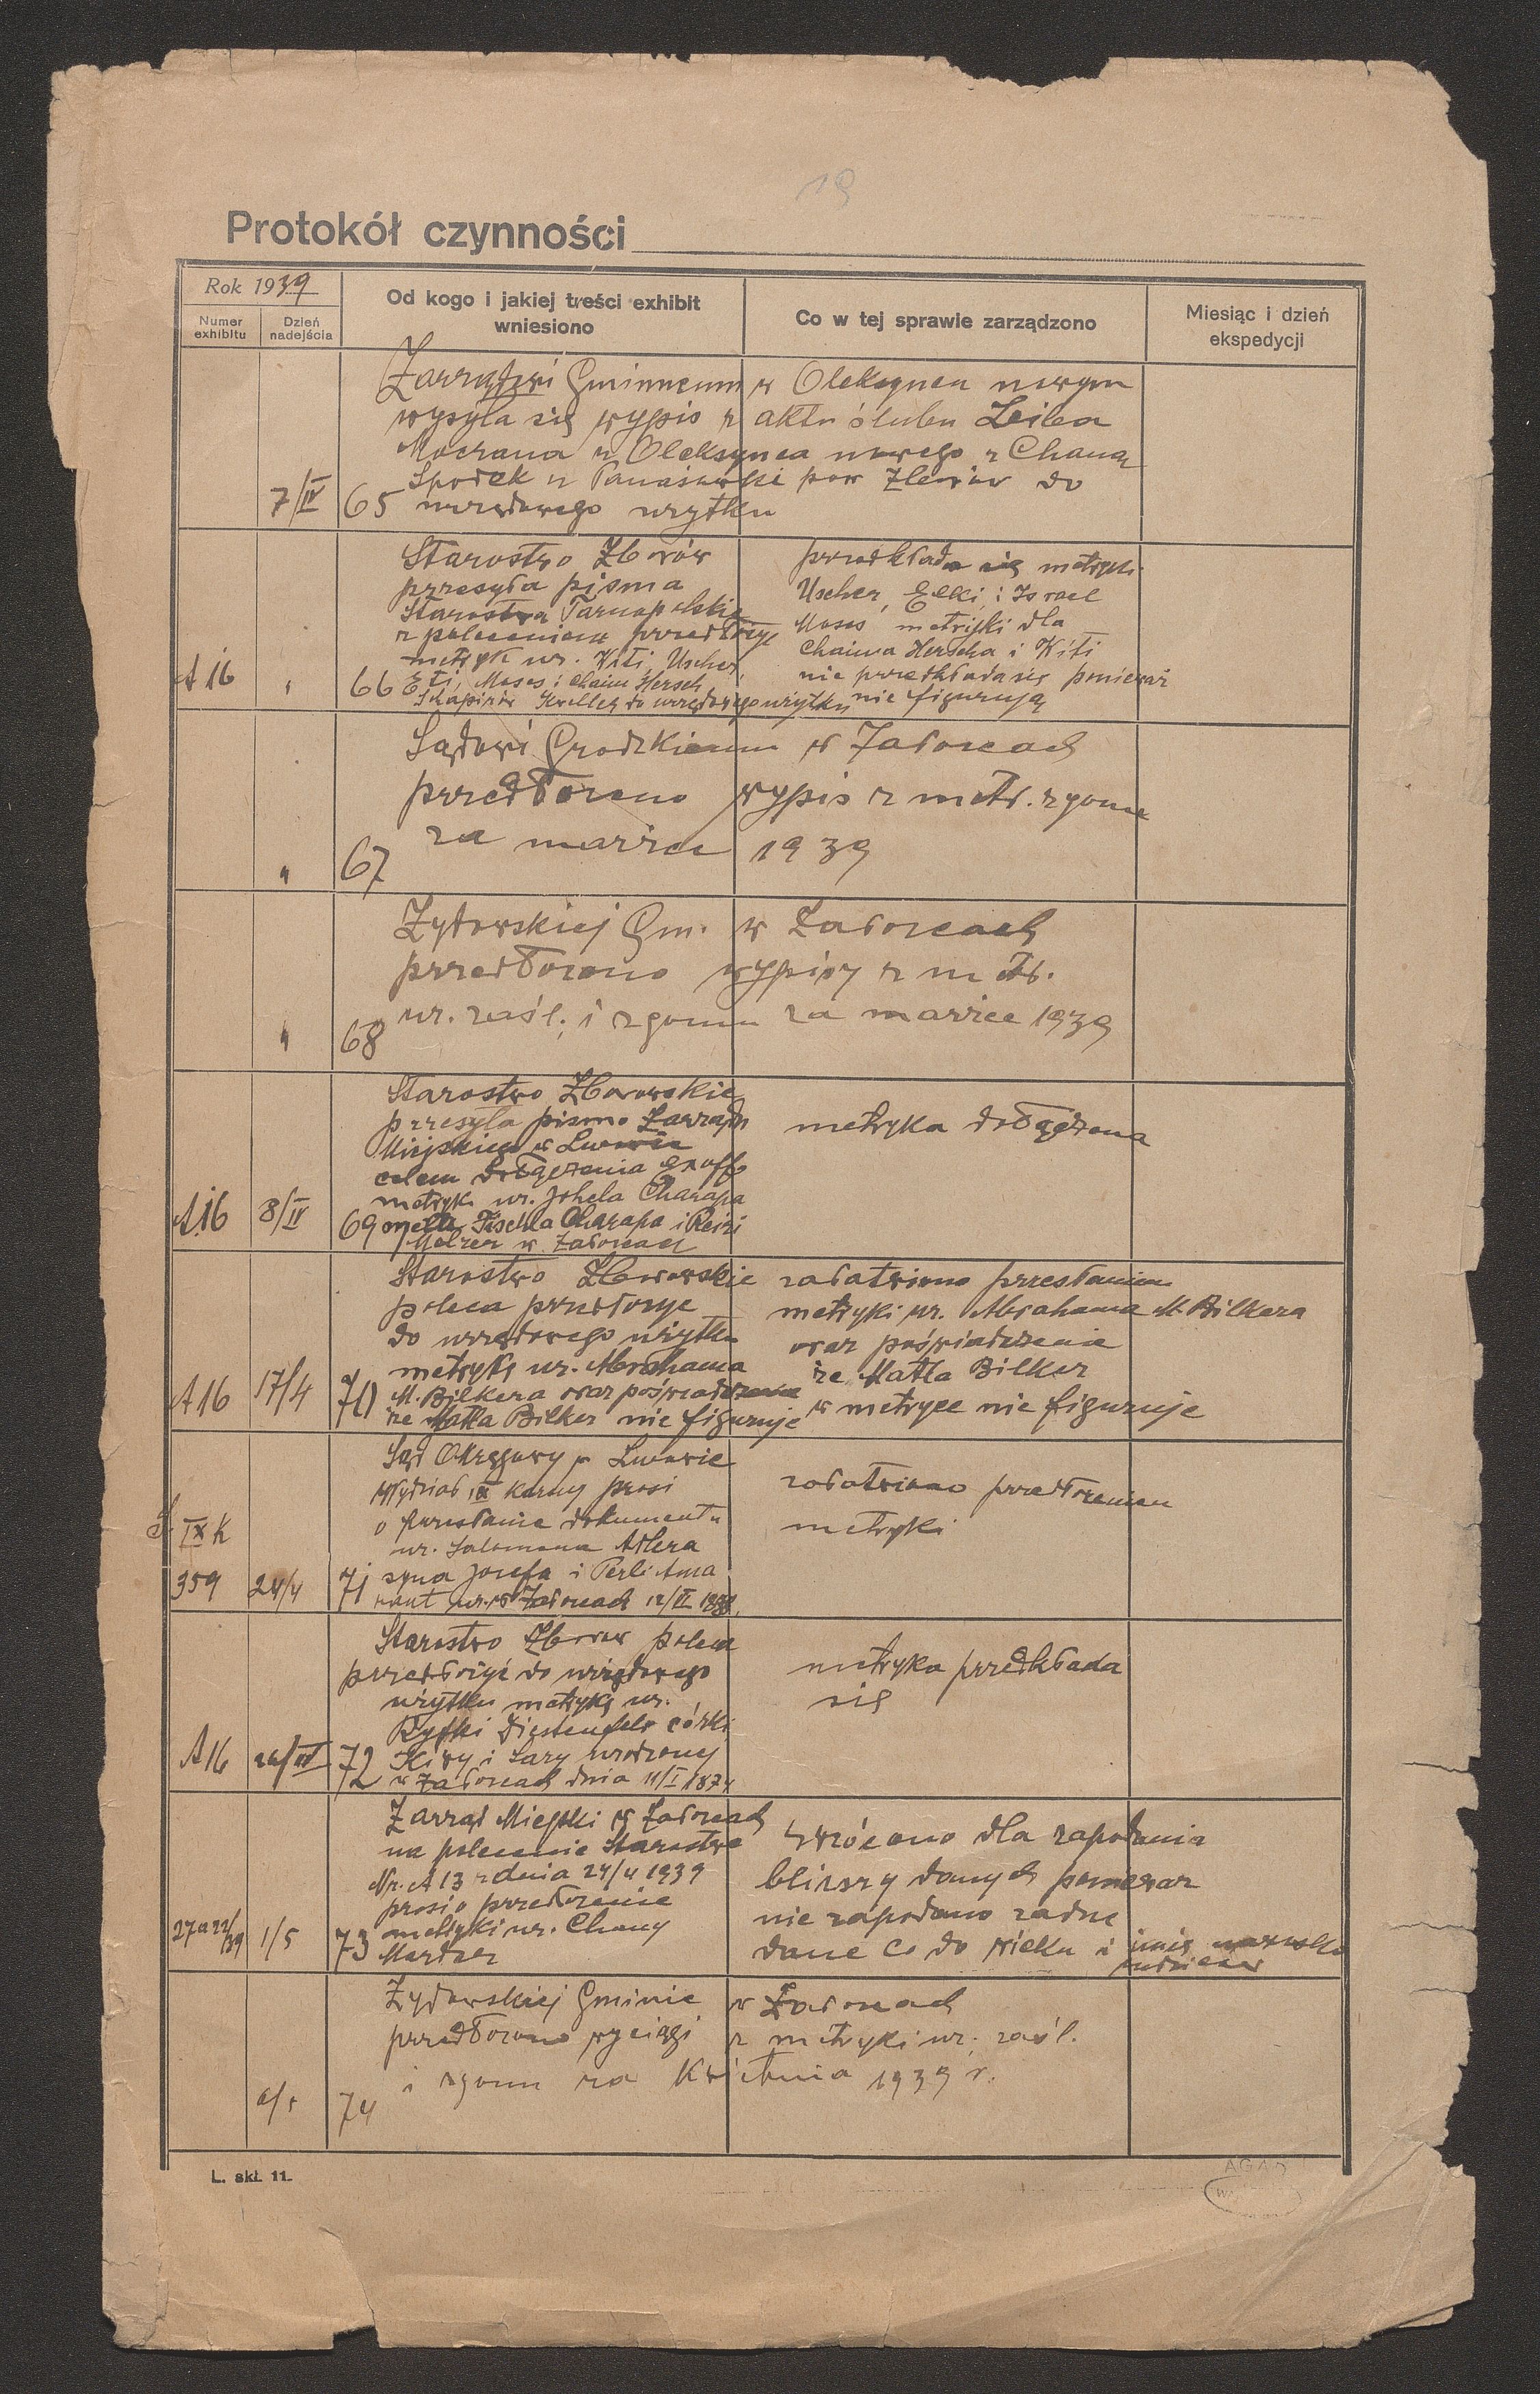 19
Protokół czynności
Rok 1939
Numer exhibitu
Dzień nadejścia
Od kogo i jakiej treści exhibit wniesiono
Co w tej sprawie zarządzono
Miesiąc i dzień ekspedycji
Zarządowi Gminnemu w Oleksyncu nowym
wysyła się wypis z aktu ślubu Leiba
z Oleksynca nowego z Chaną
pow Zborów do
7/IV 65 urzędowego użytku
Starostwo Zborów
przesyła pisma
Starostwa Tarnopolskie
z poleceniem przedłożyć
metryk ur. Kiti, Uscher,
A 16 " 66 Eti, Moses i Chaim Hersch
do urzędowego użytku
przedkłada się metryki
Uscher, Elki, i Israel
Moses metryki dla
Chaima Herscha i Kiti
nie przedkłada się ponieważ
nie figurują
Sądowi Grodzkiemu w Załoscach
przedłożono wypis z metr. zgonu
" 67 za marzec 1939
Żydowskiej Gm. w Załoscach
przedłożono wypisy z metr.
" 68 ur. zaśl. i zgonu za marzec 1939
Starostwo Zborowskie
przesyła pismo Zarządu
Miejskiego w Lwowie
celem dołączenia
metryk ur. Johela Charapa
A.16 8/IV 69 Fischla Charapa i Reizi
Melzer w Załoscach
metryka dołączona
Starostwo Zborowskie
poleca przedłożyć
do urzędowego użytku
metrykę ur. Abrahama
A 16 17/4 70 M. Bilkera oraz poświadczenie
że Matla Bilker nie figuruje
załatwiono przesłaniem
metryki ur. Abrahama M. Bilkera
oraz poświadczenie
że Matla Bilker
w metryce nie figuruje
Sąd Okręgowy w Lwowie
Wydział IX Karny prosi
o przesłanie dokumentu
IX K ur. Salomona Adlera
359 24/4 71 syna Josefa i Perli
ur. w Załoscach 12/VI
załatwiono przedłożeniem
metryki
Starostwo Zborow poleca
przedłożyć do urzędowego
użytku metrykę ur.
Ryfki córki
A 16 72 Kiwy i Sary urodzonej
w Załoscach dnia 11/I 1874
metryka przedkłada
się
Zarząd Miejski w Załoscach
na polecenie Starostwa
Nr. A 13 z dnia 24/4 1939
prosi o przedłożenie
metryki ur. Chany
1/5 73
zwrócono dla zapodania
bliższy danych ponieważ
nie zapodano żadne
dane co do wieku i imię nazwisko
Żydowskiej Gminie w Załoscach
przedłożono wyciągi z metryki ur. zaśl.
74 i zgonu za Kwietnia 1939 r.
L. skł. 11.
AGAD